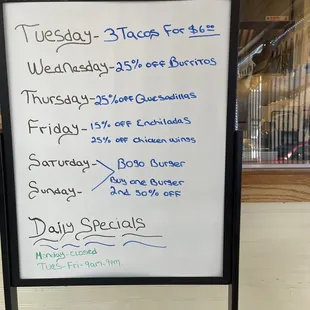 Tuesday- 3 Tacos For $6.00
Wednesday- 25% off Burritos
Thursday- 25% off Quesadillas
Friday- 15% off Enchiladas
25% off Chicken wings
Saturday- Bogo Burger
Sunday- Buy one Burger
2nd 50% off
Daily Specials
Monday-closed
Tues-Fri-9am-9pm